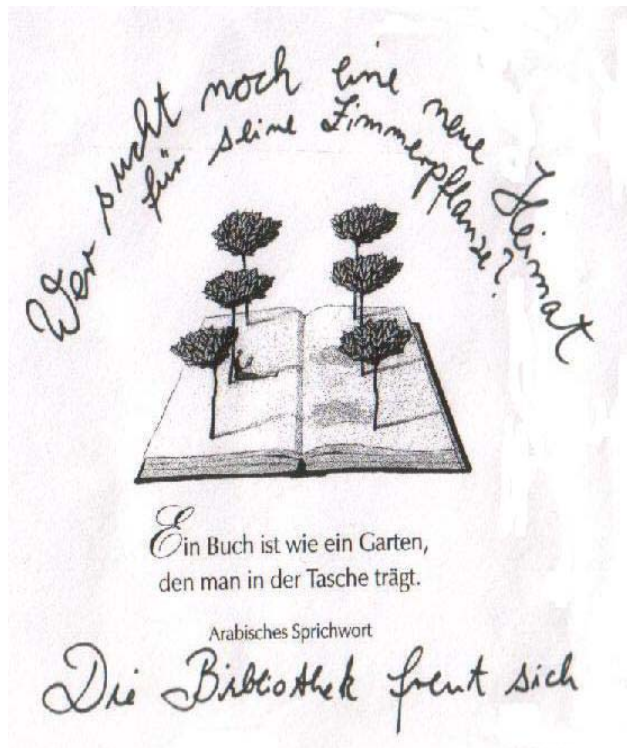 Wer sucht noch eine neue Heimat
für seine Zimmerpflanze?
Ein Buch ist wie ein Garten,
den man in der Tasche trägt.
Arabisches Sprichwort
Die Bibliothek freut sich